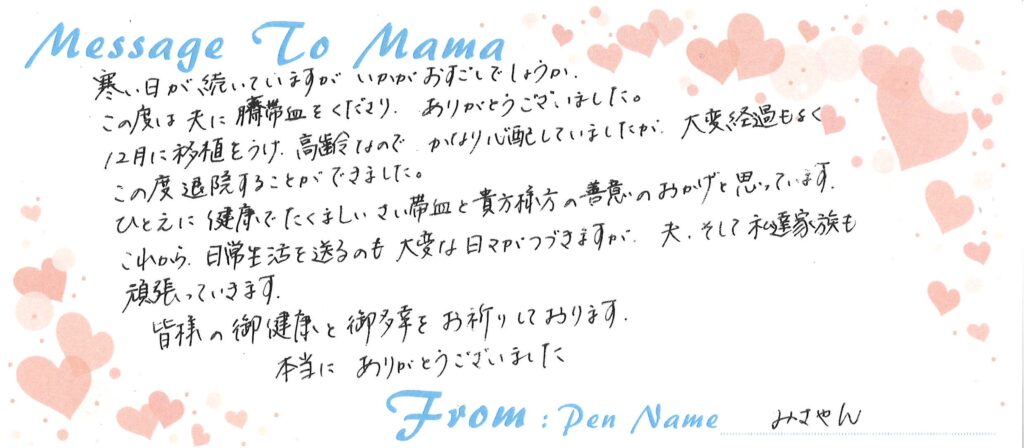 Message To Mama
寒い日が続いていますが いかがおすごしでしょうか.
この度は夫に臍帯血をくださり. ありがとうございました。
12月に移植をうけ. 高齢なので かなり心配していましたが. 大変経過もよく
この度退院することができました。
ひとえに健康でたくましいさい帯血と貴方様方の善意のおかげと思っています.
これから. 日常生活を送るのも大変な日々がつづきますが. 夫. そして私達家族も
頑張っていきます.
皆様の御健康と御多幸をお祈りしております.
本当に ありがとうございました
From : Pen Name みさやん